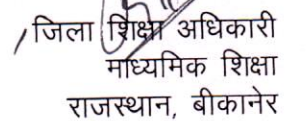 जिला शिक्षा अधिकारी
माध्यमिक शिक्षा
राजस्थान, बीकानेर